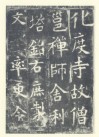 化度寺故僧
邕禪師舍利
塔銘右庶子
文　率更令